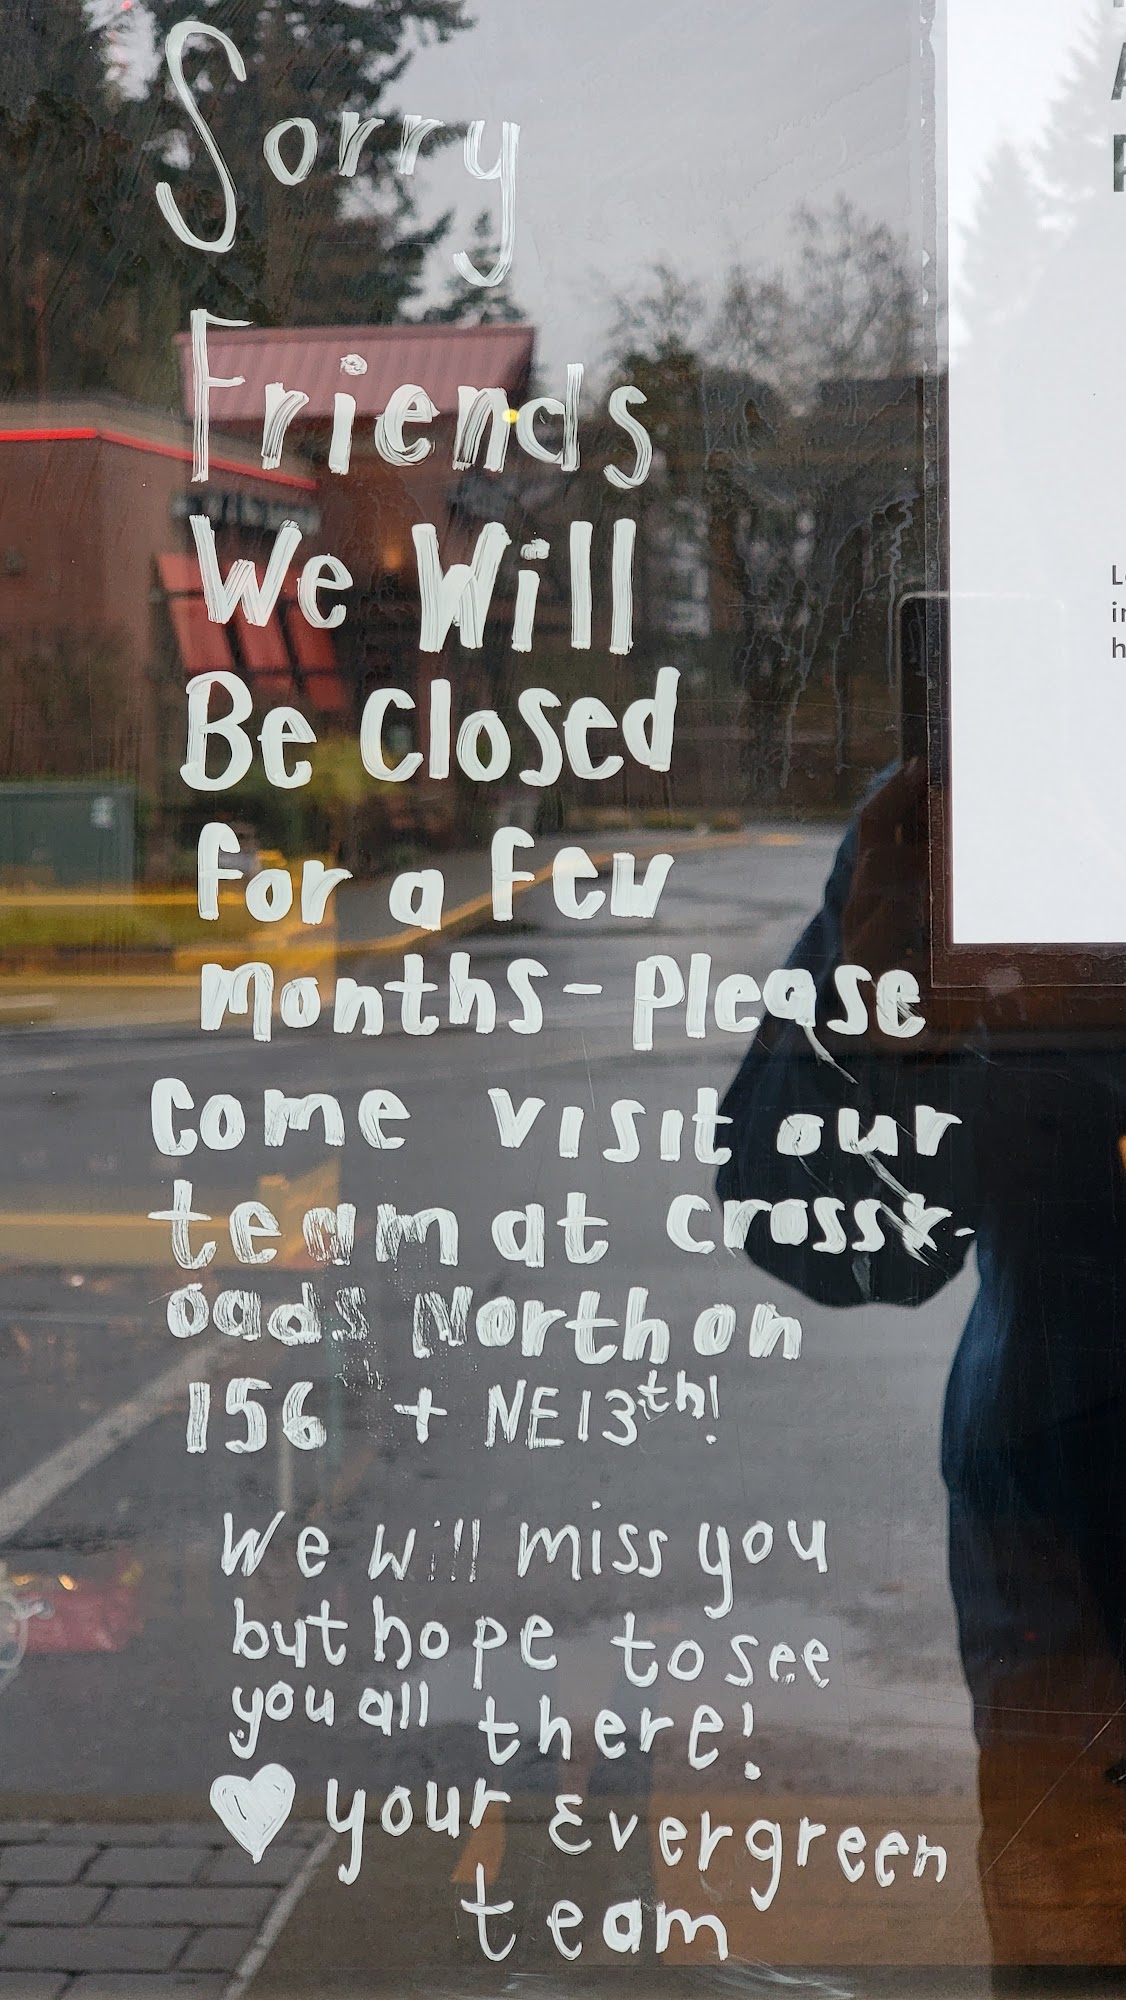 Sorry
Friends
We Will
Be Closed
for a Few
months - Please
Come visit our
team at Crossr-
oads North on
156 + NE 13th!
We will miss you
but hope to see
you all there!
♥ your Evergreen
team